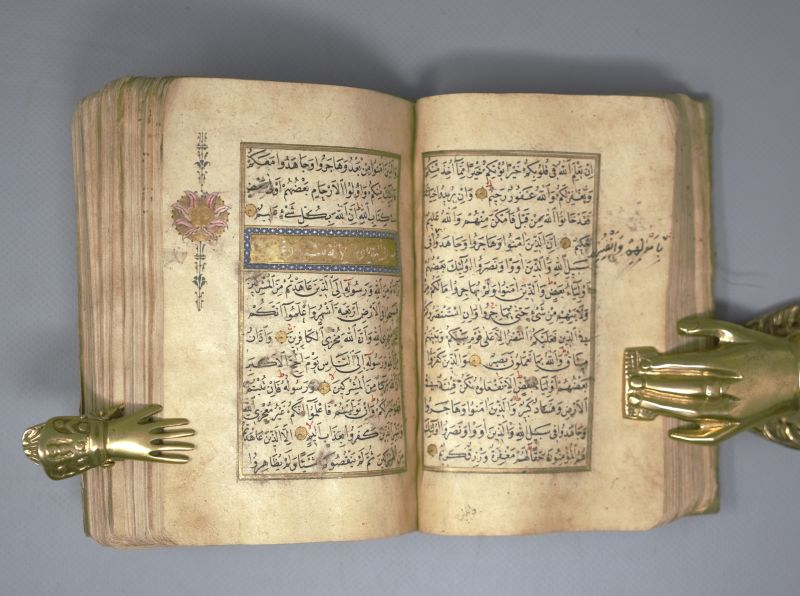 اِنْ يَعْلَمِ اللهُ فِي قُلُوبِكُمْ خَيْرًا يُؤْتِكُمْ خَيْرًا مِمَّا اُخِذَ مِنْكُمْ
وَيَغْفِرْ لَكُمْ وَاللهُ غَفُورٌ رَحِيمٌ وَاِنْ يُرِيدُوا خِيَانَتَكَ
فَقَدْ خَانُوا اللهَ مِنْ قَبْلُ فَاَمْكَنَ مِنْهُمْ وَاللهُ عَلِيمٌ
حَكِيمٌ اِنَّ الَّذِينَ اٰمَنُوا وَهَاجَرُوا وَجَاهَدُوا فِي
بِاَمْوَالِهِمْ وَاَنْفُسِهِمْ
سَبِيلِ اللهِ وَالَّذِينَ اٰوَوْا وَنَصَرُوا اُولٰئِكَ بَعْضُهُمْ
اَوْلِيَاءُ بَعْضٍ وَالَّذِينَ اٰمَنُوا وَلَمْ يُهَاجِرُوا مَا لَكُمْ مِنْ
وَلَايَتِهِمْ مِنْ شَيْءٍ حَتّٰى يُهَاجِرُوا وَاِنِ اسْتَنْصَرُوكُمْ
فِي الدِّينِ فَعَلَيْكُمُ النَّصْرُ اِلَّا عَلٰى قَوْمٍ بَيْنَكُمْ وَبَيْنَهُمْ
مِيثَاقٌ وَاللهُ بِمَا تَعْمَلُونَ بَصِيرٌ وَالَّذِينَ كَفَرُوا
بَعْضُهُمْ اَوْلِيَاءُ بَعْضٍ اِلَّا تَفْعَلُوهُ تَكُنْ فِتْنَةٌ فِي
الْاَرْضِ وَفَسَادٌ كَبِيرٌ وَالَّذِينَ اٰمَنُوا وَهَاجَرُوا
وَجَاهَدُوا فِي سَبِيلِ اللهِ وَالَّذِينَ اٰوَوْا وَنَصَرُوا اُولٰئِكَ
هُمُ الْمُؤْمِنُونَ حَقًّا لَهُمْ مَغْفِرَةٌ وَرِزْقٌ كَرِيمٌ
وَالَّذِينَ اٰمَنُوا مِنْ بَعْدُ وَهَاجَرُوا وَجَاهَدُوا مَعَكُمْ
فَاُولٰئِكَ مِنْكُمْ وَاُولُوا الْاَرْحَامِ بَعْضُهُمْ اَوْلٰى بِبَعْضٍ
فِي كِتَابِ اللهِ اِنَّ اللهَ بِكُلِّ شَيْءٍ عَلِيمٌ
بَرَاءَةٌ مِنَ اللهِ وَرَسُولِهِ اِلَى الَّذِينَ عَاهَدْتُمْ مِنَ الْمُشْرِكِينَ
فَسِيحُوا فِي الْاَرْضِ اَرْبَعَةَ اَشْهُرٍ وَاعْلَمُوا اَنَّكُمْ
غَيْرُ مُعْجِزِي اللهِ وَاَنَّ اللهَ مُخْزِي الْكَافِرِينَ وَاَذَانٌ
مِنَ اللهِ وَرَسُولِهِ اِلَى النَّاسِ يَوْمَ الْحَجِّ الْاَكْبَرِ
اَنَّ اللهَ بَرِيءٌ مِنَ الْمُشْرِكِينَ وَرَسُولُهُ فَاِنْ تُبْتُمْ
فَهُوَ خَيْرٌ لَكُمْ وَاِنْ تَوَلَّيْتُمْ فَاعْلَمُوا اَنَّكُمْ غَيْرُ مُعْجِزِي
اللهِ وَبَشِّرِ الَّذِينَ كَفَرُوا بِعَذَابٍ اَلِيمٍ اِلَّا الَّذِينَ عَاهَدْتُمْ
مِنَ الْمُشْرِكِينَ ثُمَّ لَمْ يَنْقُصُوكُمْ شَيْئًا وَلَمْ يُظَاهِرُوا